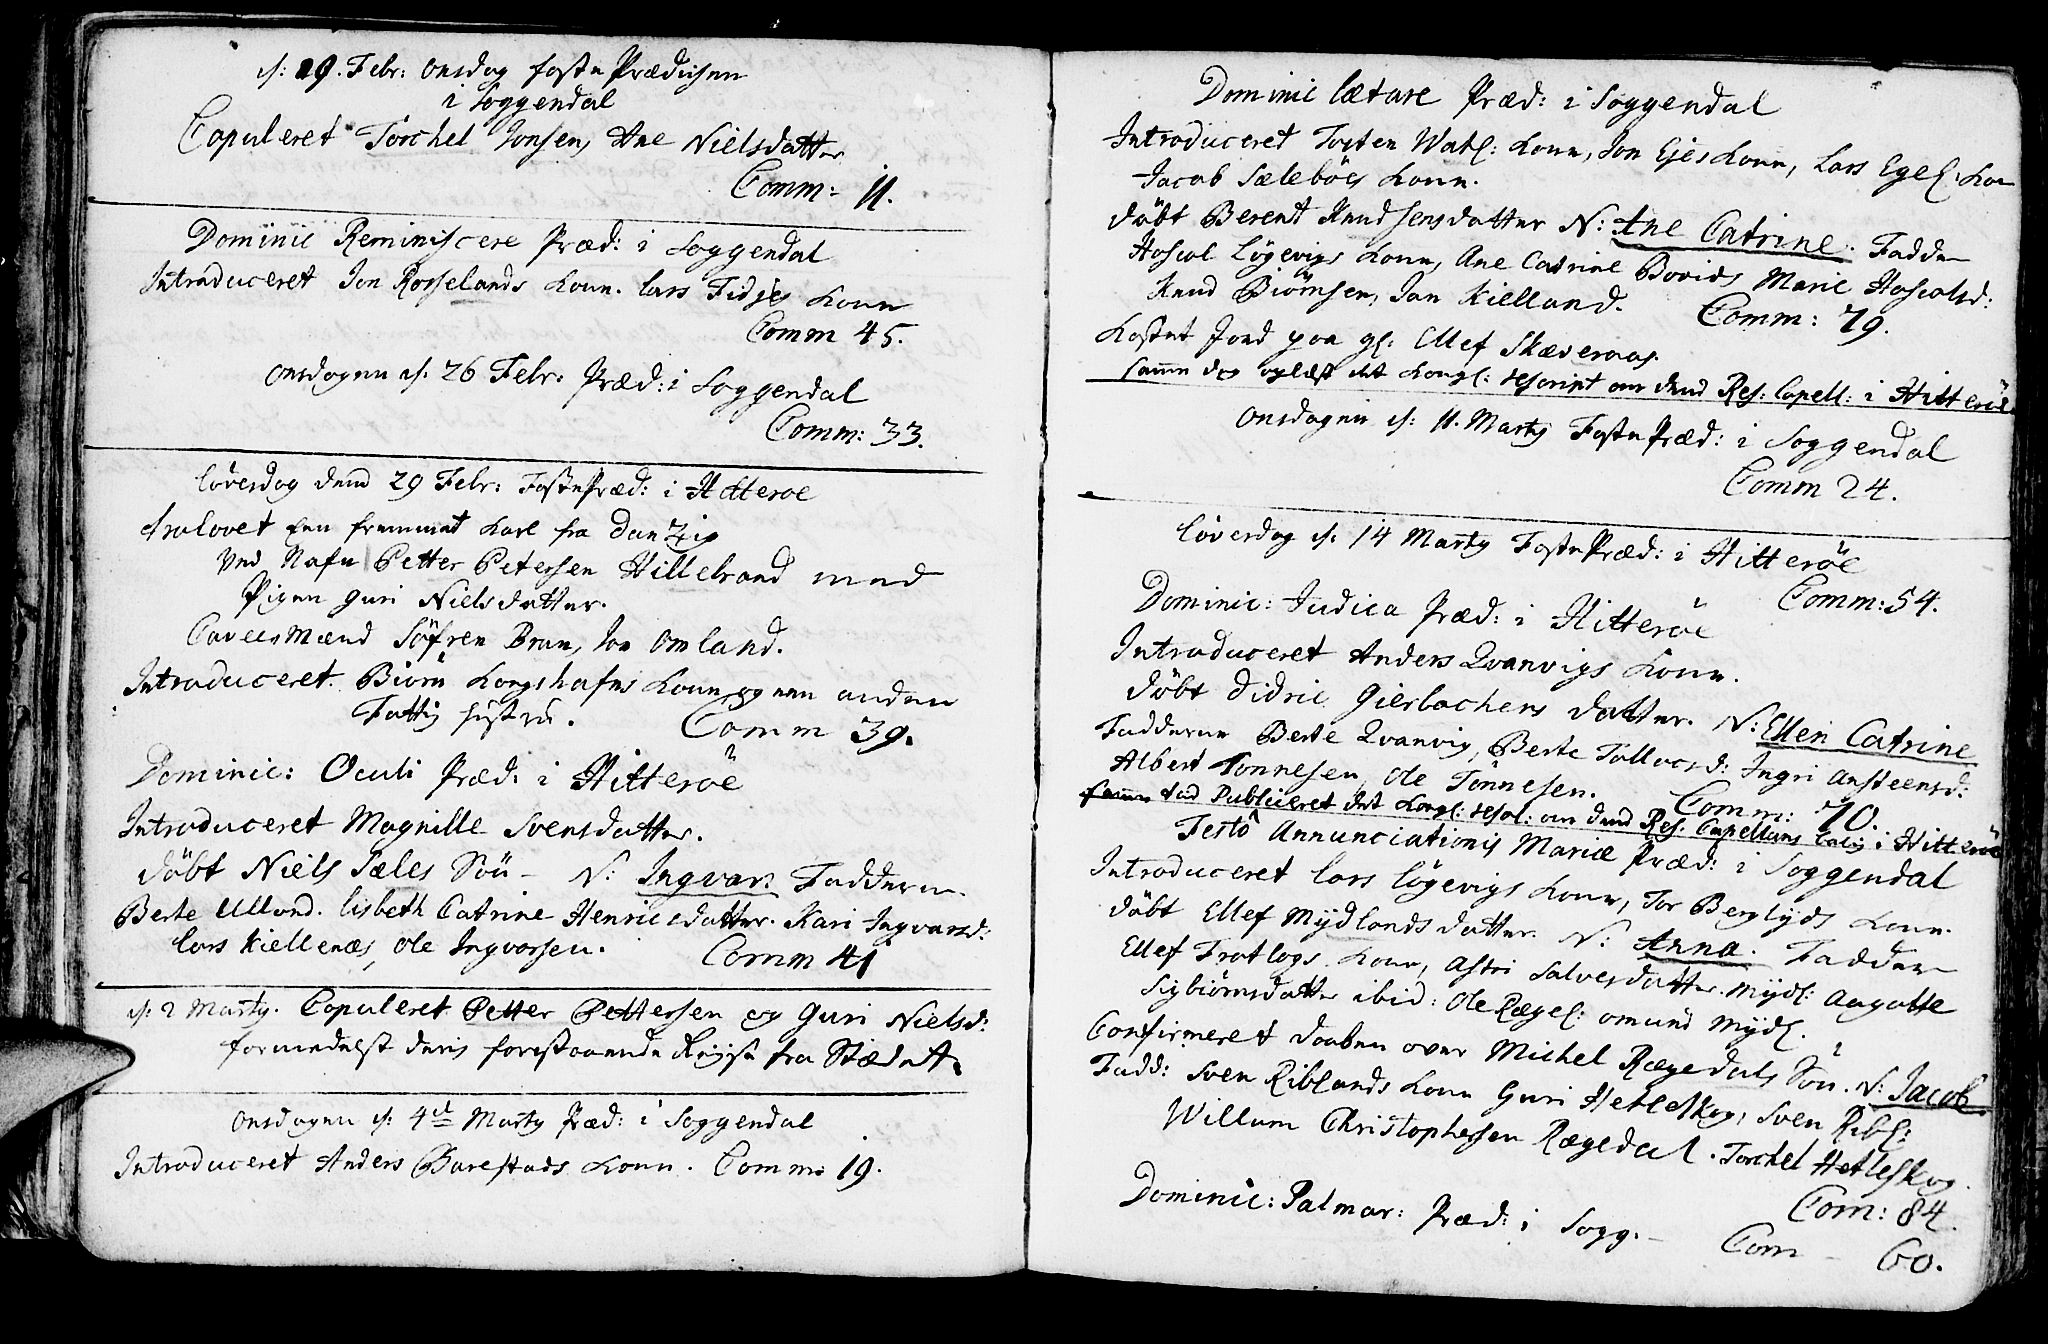 d: 19. Febr: Onsdag faste Prædichen
i Soggendal
Copuleret Torchel Jonsen, Ane Nielsdatter
Comm: 11.
Dominic Reminiscere Præd: i Soggendal
Introduceret Jon Rosselands Kone. Lars Fidjes Kone
Comm 45.
Onsdagen d: 26 Febr. Præd: i Soggendal
Comm: 33.
Löversdag dend 29 Febr: FastePræd: i Hitteröe
Trolovet een fremmet Karl fra Danzig
ved Nafn Petter Petersen Hillebrand med
Pigen Guri Nielsdatter.
Caveer Mænd Söfren Brun, Jon Omland.
Introduceret Biörn Kongshafns Kone og een anden
Fattig hustru. Comm 39.
Dominic: Oculi Præd: i Hitteröe
Introduceret Magnille Svensdatter.
döbt Niels Sæles Sön - N: Ingvar. Fadderne
Berte Ulland. Lisbeth Catrine Henricsdatter. Kari Ingvarsd:
Lars Kiellenæs, Ole Ingvarsen. Comm 41
d: 2 Marty. Copuleret Petter Pettersen og Guri Nielsd:
formedelst deris forestaaende Reyse fra Stædet.
Onsdagen d: 4de Marty Præd: i Soggendal
Introduceret Anders Barestads Kone. Comm: 19.
Dominic Lætare Præd: i Soggendal
Introduceret Tosten Watl: Kone, Jon Ejes Kone, Lars Egel: Kone
Jacob Sæleböes Kone.
döbt Berent Knudsensdatter N: Ane Catrine. Fadder
Hoscol Lögevigs Kone, Ane Catrine Bovids Marie Hoscolsd:
Knud Biörnsen, Jan Kielland. Comm: 79.
Kastet Jord paa gl: Ellef Skæveraas.
samme dag oplæst det Kongl: rescript om dend Res: Capell: i Hitteröe
Onsdagen d: 11. Marty FastePræd: i Soggendal
Comm 24.
Löverdag d: 14 Marty FastePræd: i Hitteröe
Comm: 54.
Dominic: Judica Præd: i Hitteröe
Introduceret Anders Qvanvigs Kone.
döbt Didric Gierlachens datter. N: Ellen Catrine
Fadderne Berte Qvanvig, Berte Tollacsd: Ingri Ansteensd:
Albert Tönnesen, Ole Tönnesen. Comm: 70.
samme tid Publiceret det Kongl: resol: om dend Res: Capellans i Hitteröe
Festo Annunciationis Mariæ Præd: i Soggendal
Introduceret Lars Lögevigs Kone, Tor Berglyds Kone.
döbt Ellef Mydlands datter. N: Anna. Fadder
Ellef Frotlogs Kone, Astri Salvesdatter Mydl: Aagotte
Sigbiörnsdatter ibid: Ole Rægel: Omund Mydl.
Confirmeret daaben over Michel Rægedals Sön. N: Jacob.
Fadd: Sven Riblands Kone Guri Hetleskog, Sven Ribl:
Willum Christophersen Rægedal. Torchel Hetleskog.
Com: 84.
Dominic: Palmar: Præd: i Sogg. - Com - 60.